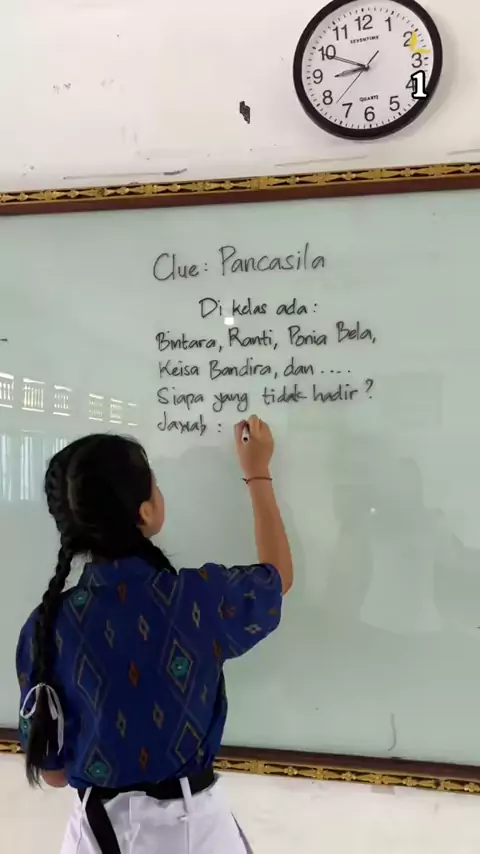 12
1
2
3
4
5
6
7
8
9
10
11
SEVENTIME
QUARTZ
1
Clue : Pancasila
Di kelas ada :
Bintara, Ranti, Ponia Bela,
Keisa Bandira, dan ....
Siapa yang tidak hadir ?
Jawab :